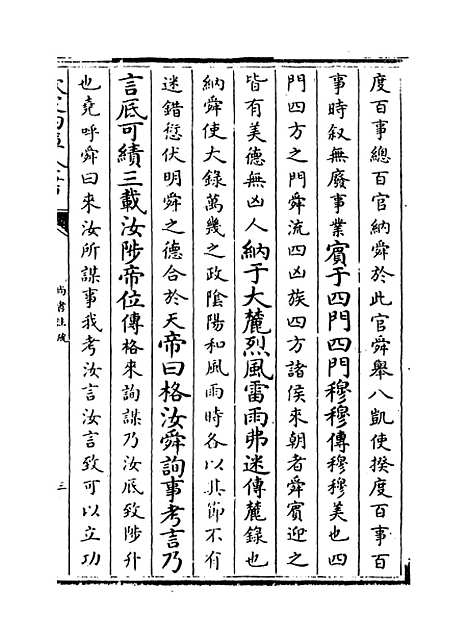 度百事總百官納舜於此官舜舉八凱使揆度百事百
事時敘無廢事業賓于四門四門穆穆傳穆穆美也四
門四方之門舜流四凶族四方諸侯來朝者舜賓迎之
皆有美德無凶人納于大麓烈風雷雨弗迷傳麓錄也
納舜使大錄萬幾之政陰陽和風雨時各以其節不有
迷錯愆伏明舜之德合於天帝曰格汝舜詢事考言乃
言厎可績三載汝陟帝位傳格來詢謀乃汝厎致陟升
也堯呼舜曰來汝所謀事我考汝言汝言致可以立功
尚書注疏
三